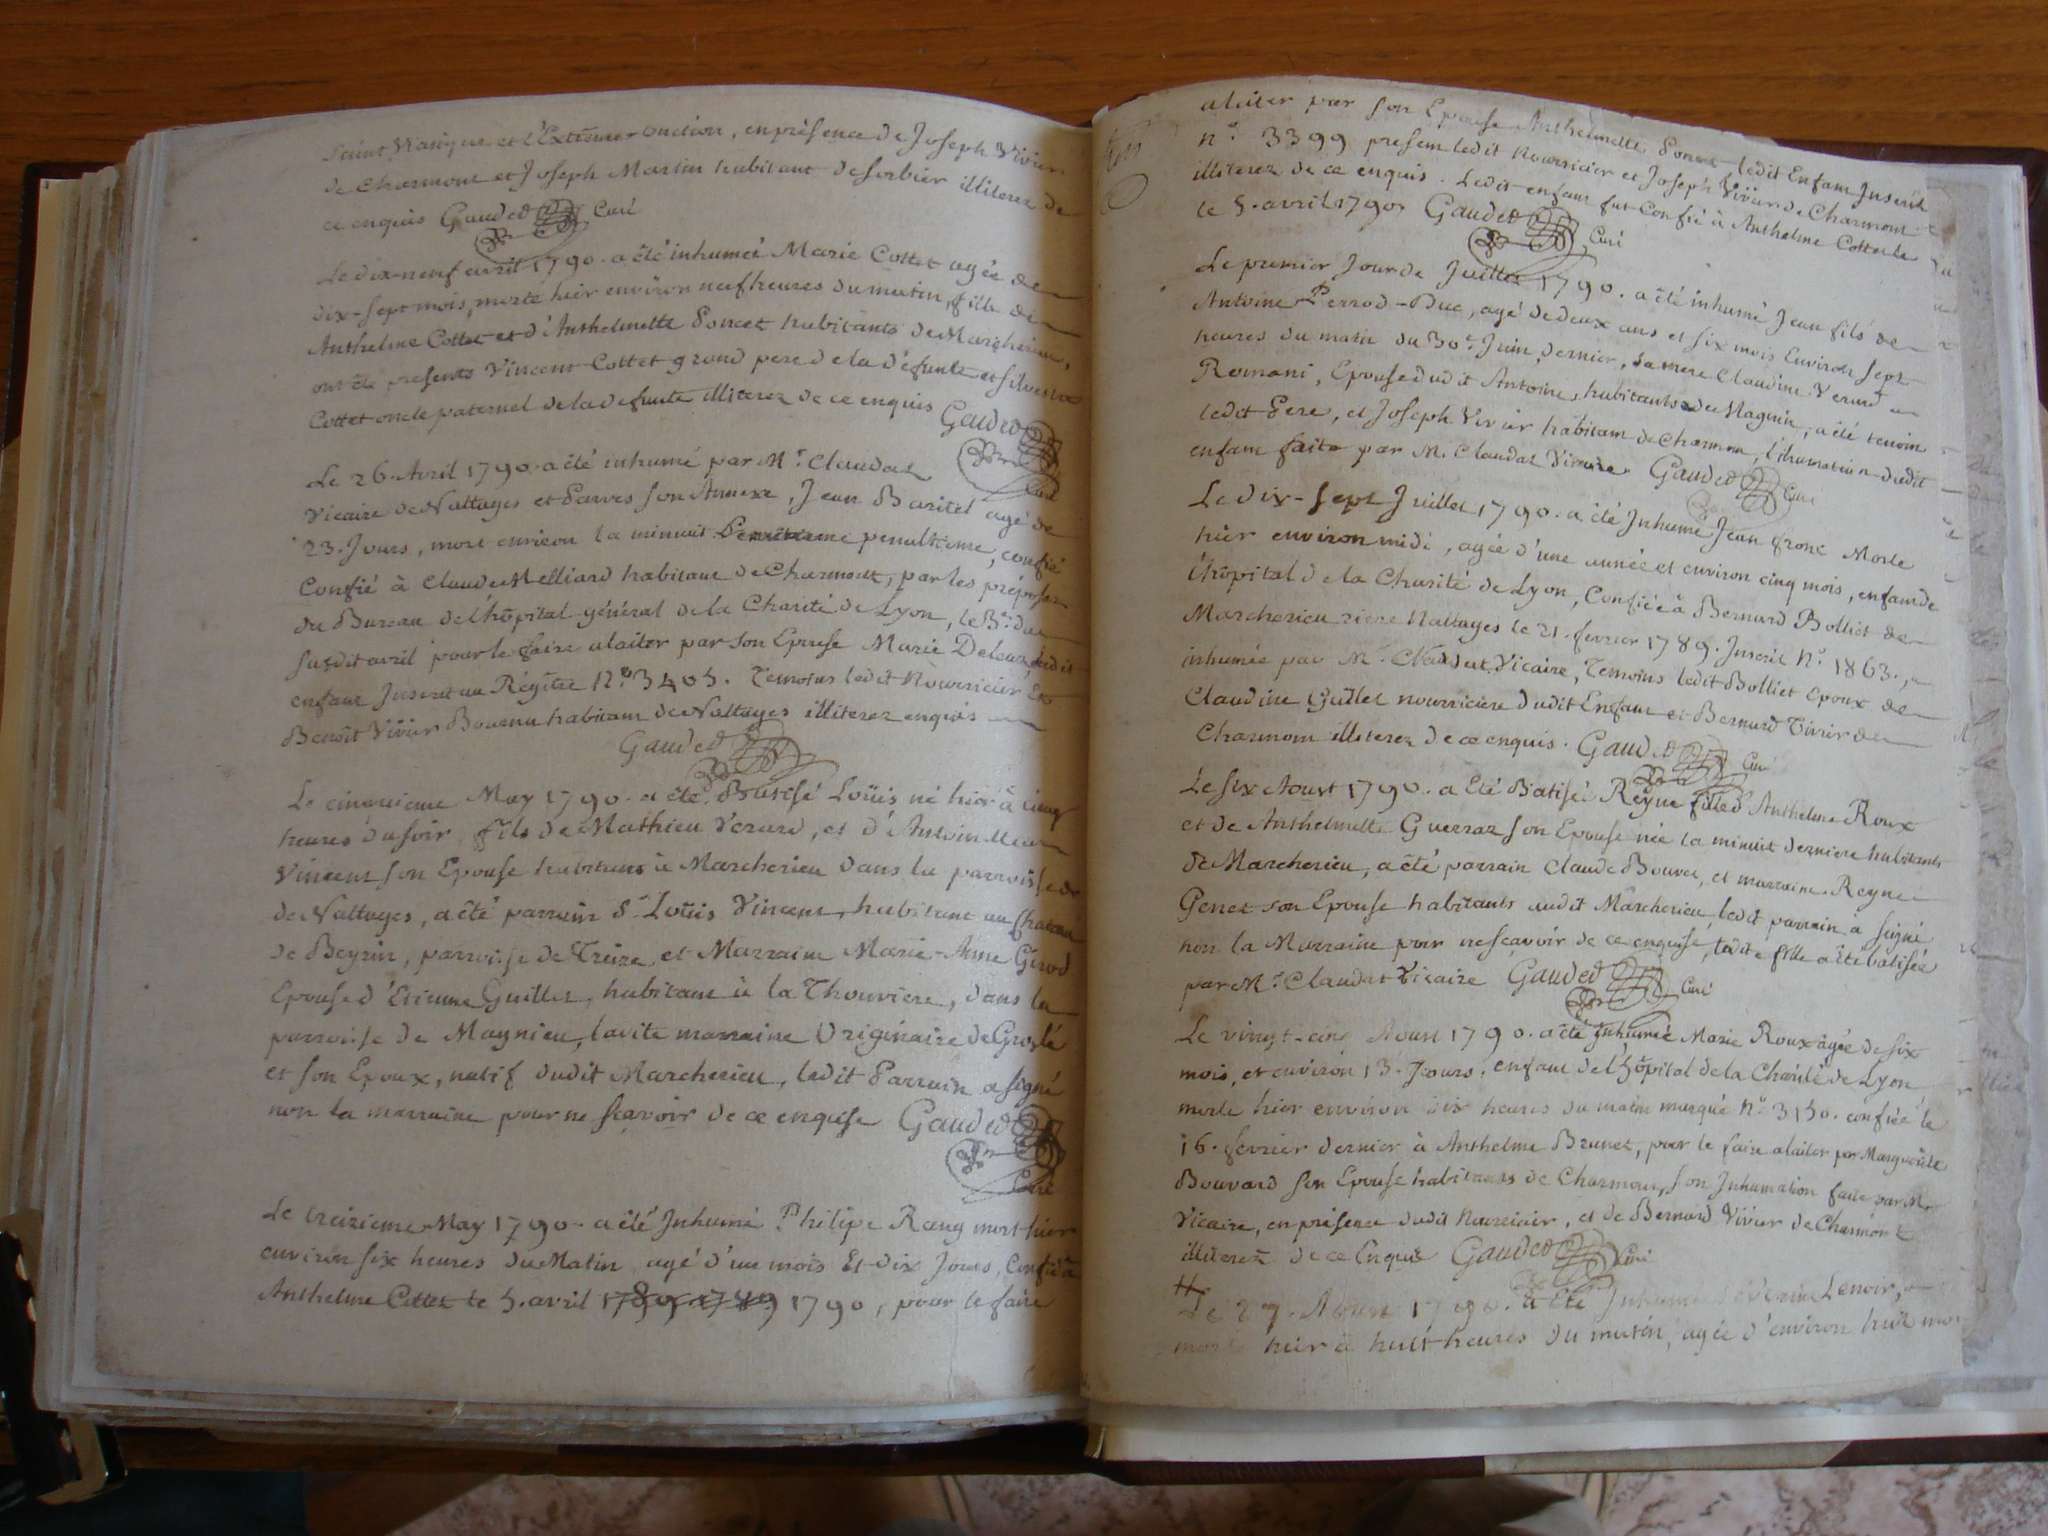 Saint Viatique et l'Extrême-onction, en présence de Joseph Vivier
de Charmont et Joseph Martin habitant de sorbier illiterez de
ce enquis Gauded Curé
Le dix-neuf avril 1790. a été inhumée Marie Cottet agée de
dix-sept mois, morte hier environ neuf heures du matin, fille de
Anthelme Cottet et d'Anthelmette Poncet habitants de Marcherieu,
ont été presents Vincent Cottet grand pere de la défunte et silvestre
Cottet oncle paternel de la defunte illiterez de ce enquis Gauded
Curé
Le 26. Avril 1790. a été inhumé par Mr. Claudat
Vicaire de Nattages et Parves son Annexe, Jean Baritel agé de
23. Jours, mort environ la minuit penultieme, confié
Confié à Claude Melliard habitant de Charmont, par les préposez
du Bureau de l'hôpital général de la Charité de Lyon, le
susdit avril pour le faire alaiter par son Epouse Marie ledit
enfant Inserit au Régître N.º 3405. Temoins ledit Nourricier Et
Benoît Vivier Bournu habitant de Nattages illiterez enquis
Gauded
Le cinquieme May 1790. a été Batisé Loüis né hier à cinq
heures du soir fils de Mathieu Verard, et d'Antoinette
Vincent son Epouse habitans à Marcherieu dans la parroisse de
de Nattages, a été parrain Sr. Loüis Vincent, habitant au Chateau
de Beyrin, parroisse de Treize, et Marraine Marie-Anne Girod
Epouse d'Etienne Guillet, habitant à la Thouviere, dans la
parroisse de Magnieu, ladite marraine Originaire de Groslé
et son Epoux, natif dudit Marcherieu, ledit Parrain a signé
non la marraine pour ne sçavoir de ce enquise Gauded
Curé
Le treizieme May 1790. a été Inhumé Philipe Rang mort hier
environ six heures du Matin agé d'un mois Et dix Jours, Confié à
Anthelme Cottet le 5. avril 1789 1749 1790, pour le faire
alaiter par son Epouse Anthelmette Poncet ledit Enfant Inserit
n.º 3399 presem ledit Nourricier et Joseph Vivier de Charmont
illiterez de ce enquis. Ledit enfant fut Confié à Anthelme Cottet le
le 5. avril 1790. Gauded Curé
Le premier Jour de Juillet 1790. a été inhumé Jean fils de
Antoine Perrod-Duc, agé de deux ans et six mois Environ sept
heures du matin du 30e. Juin dernier, sa mere Claudine Verard
Romani, Epouse dudit Antoine, habitants de Nagnin, a été temoin
ledit Pere, et Joseph Vivier habitant de Charmon, l'ihumation dudit
enfam faite par M. Claudat Vicaire Gauded Curé
Le Dix-sept Juillet 1790. a été Inhumé Jean front Morte
hier environ midi, agée d'une année et environ cinq mois, enfam de
l'hôpital de la Charité de Lyon, Confiée à Bernard Bolliet de
Marcherieu riere Nattages le 21. fevrier 1789. Inserit N.º 1863.
inhumée par Mr. Claudat Vicaire, Temoins ledit Bolliet epoux de
Claudine Guillet nourriciere dudit Enfant et Bernard Vivier de
Charmom illiterez de ce enquis. Gauded Curé
Le six Aoust 1790. a Eté Batisé Reyne fille d'Anthelme Roux
et de Anthelmette Guerraz son Epouse née la minuit derniere habitants
de Marcherieu, a été parrain Claude Bouvet, et marraine Reyne
Genet son Epouse habitants audit Marcherieu, ledit parrain a signé,
non la Marraine pour ne sçavoir de ce enquise, ladite fille a été batisée
par Mr. Claudat Vicaire Gauded Curé
Le vingt-cinq Aoust 1790. a été Inhumée Marie Roux âgée de six
mois, et environ 13. Jours, enfant de l'hôpital de la Charité de Lyon
morte hier environ dix heures du matin marqué N.º 3150. confiée le
16. fevrier dernier à Anthelme Brunet, pour le faire alaiter par Marguerite
Bouvard son Epouse habitants de Charmont, son Inhumation faite par Mr.
Vicaire, en présence dudit Nourricier, et de Bernard Vivier de Charmont
illiterez de ce Enquis Gauded Curé
Le 27. Aoust 1790. a été Inhumé Lenoir,
morte hier à huit heures du matin, agée d'environ huit mois